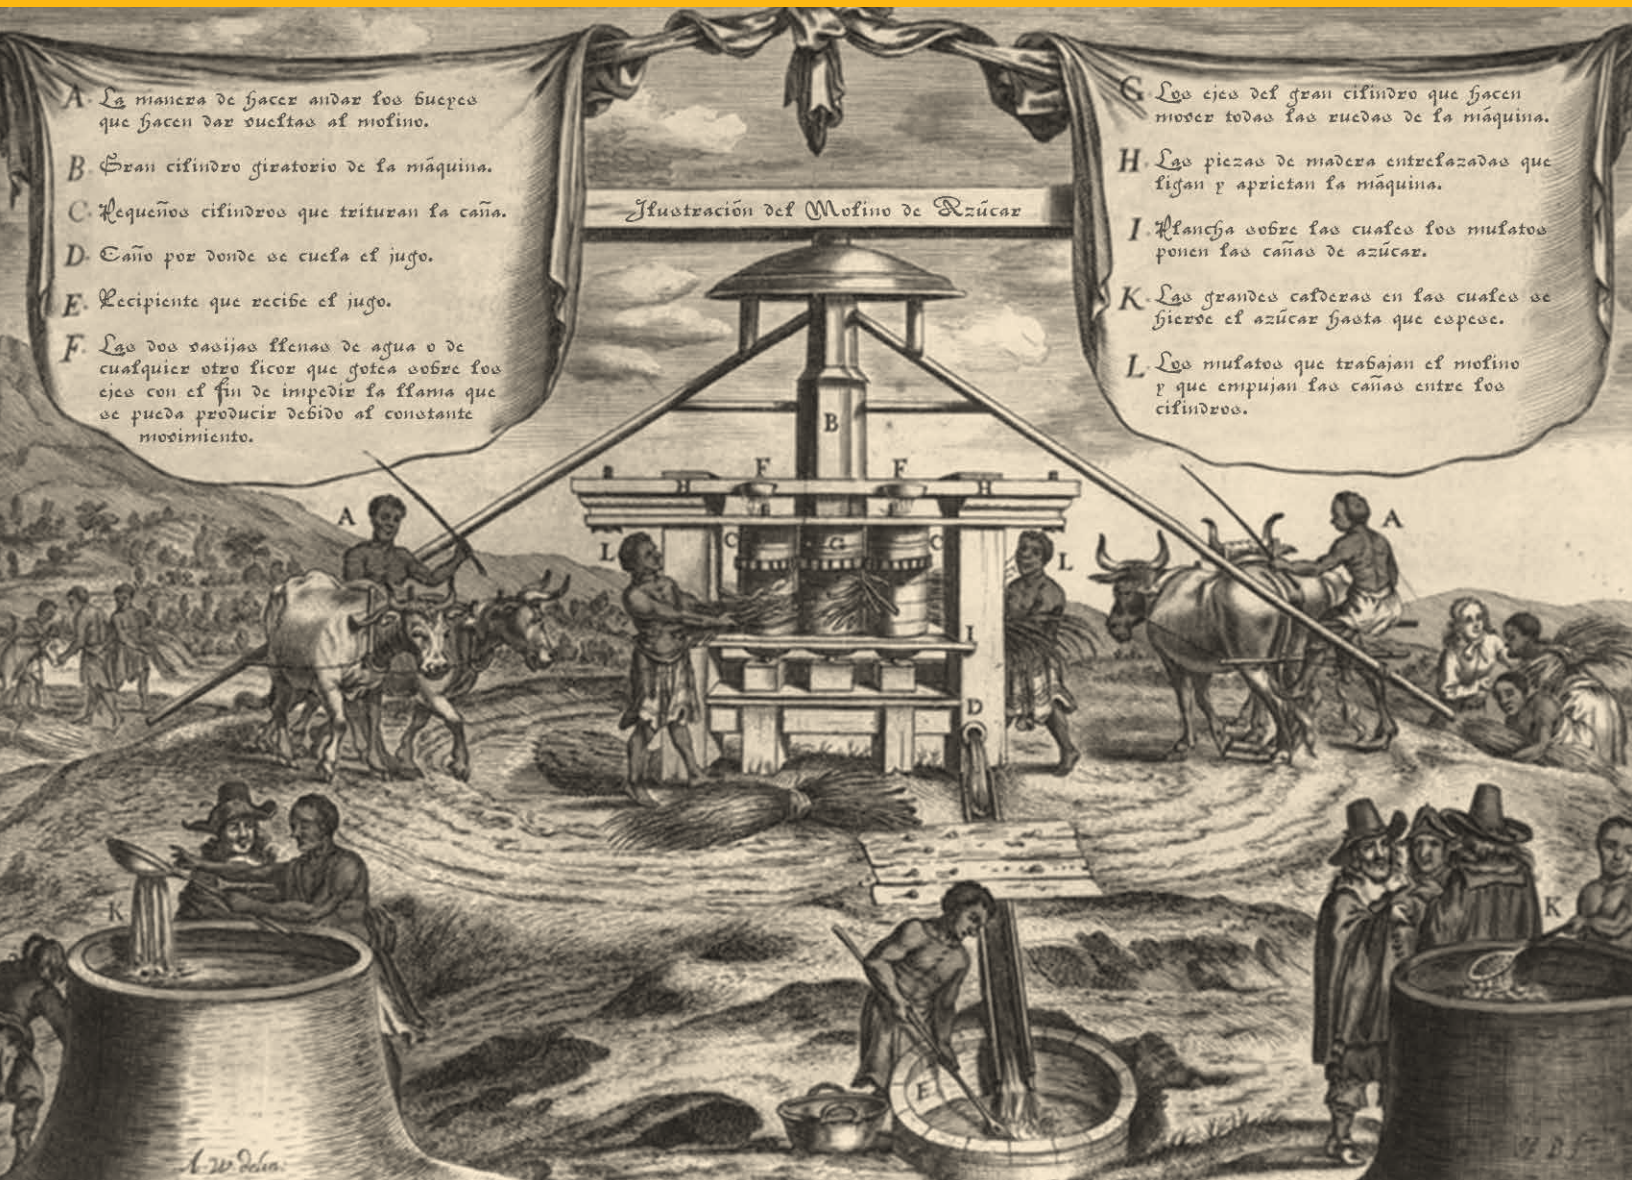 A. La manera de hacer andar los bueyes
que hacen dar vueltas al molino.
B. Gran cilindro giratorio de la máquina.
C. Pequeños cilindros que trituran la caña.
D. Caño por donde se cuela el jugo.
E. Recipiente que recibe el jugo.
F. Las dos vasijas llenas de agua o de
cualquier otro licor que gotea sobre los
ejes con el fin de impedir la llama que
se pueda producir debido al constante
movimiento.
Ilustración del Molino de Azúcar
G. Los ejes del gran cilindro que hacen
mover todas las ruedas de la máquina.
H. Las piezas de madera entrelazadas que
ligan y aprietan la máquina.
I. Plancha sobre las cuales los mulatos
ponen las cañas de azúcar.
K. Las grandes calderas en las cuales se
hierve el azúcar hasta que espese.
L. Los mulatos que trabajan el molino
y que empujan las cañas entre los
cilindros.
B
F F
H H
A A
C G C
L L
I
D
K K
E
A. W. delin.